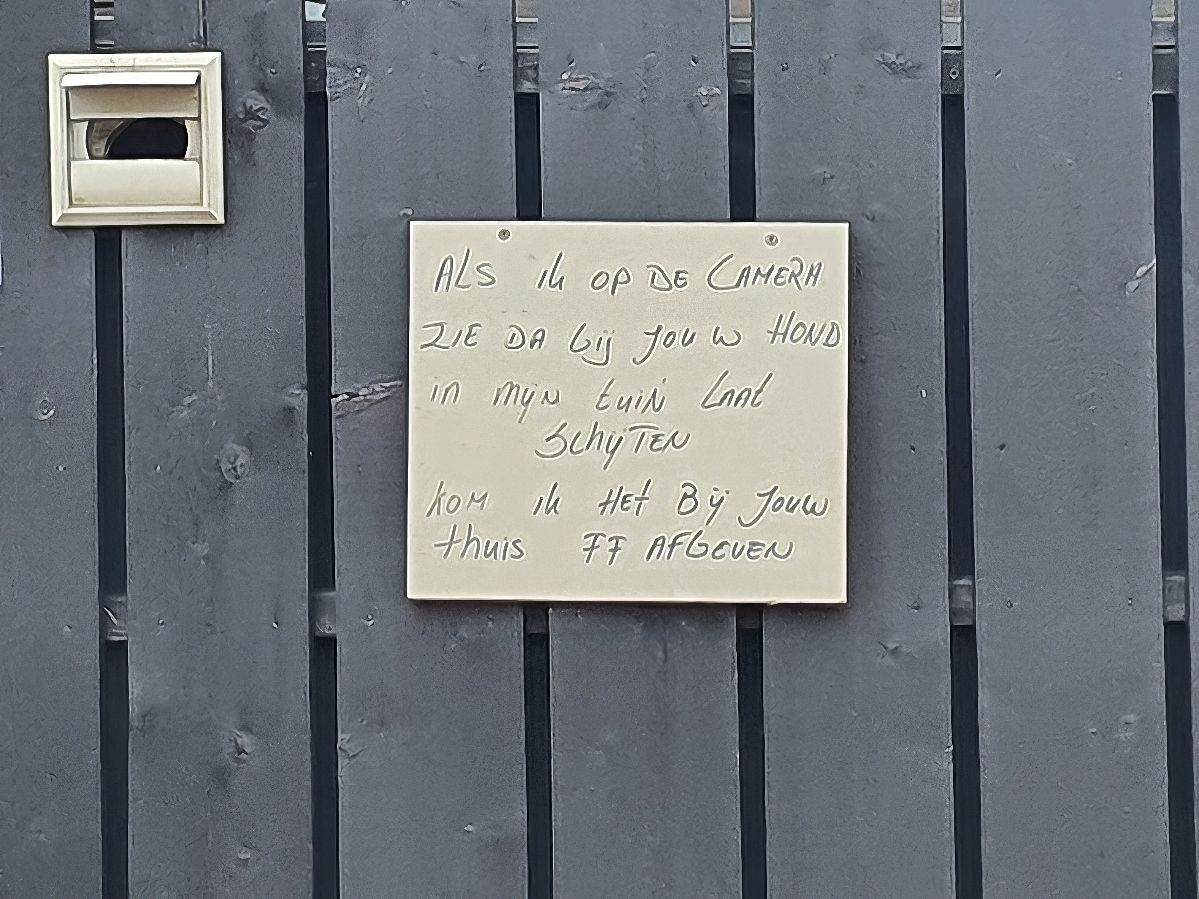 ALS ik OP DE CAMERA
ZIE DA bij jouw HOND
in mijn tuin laat
SchijTEN
kOM ik HEt Bij Jouw
thuis FF AFGEVEN